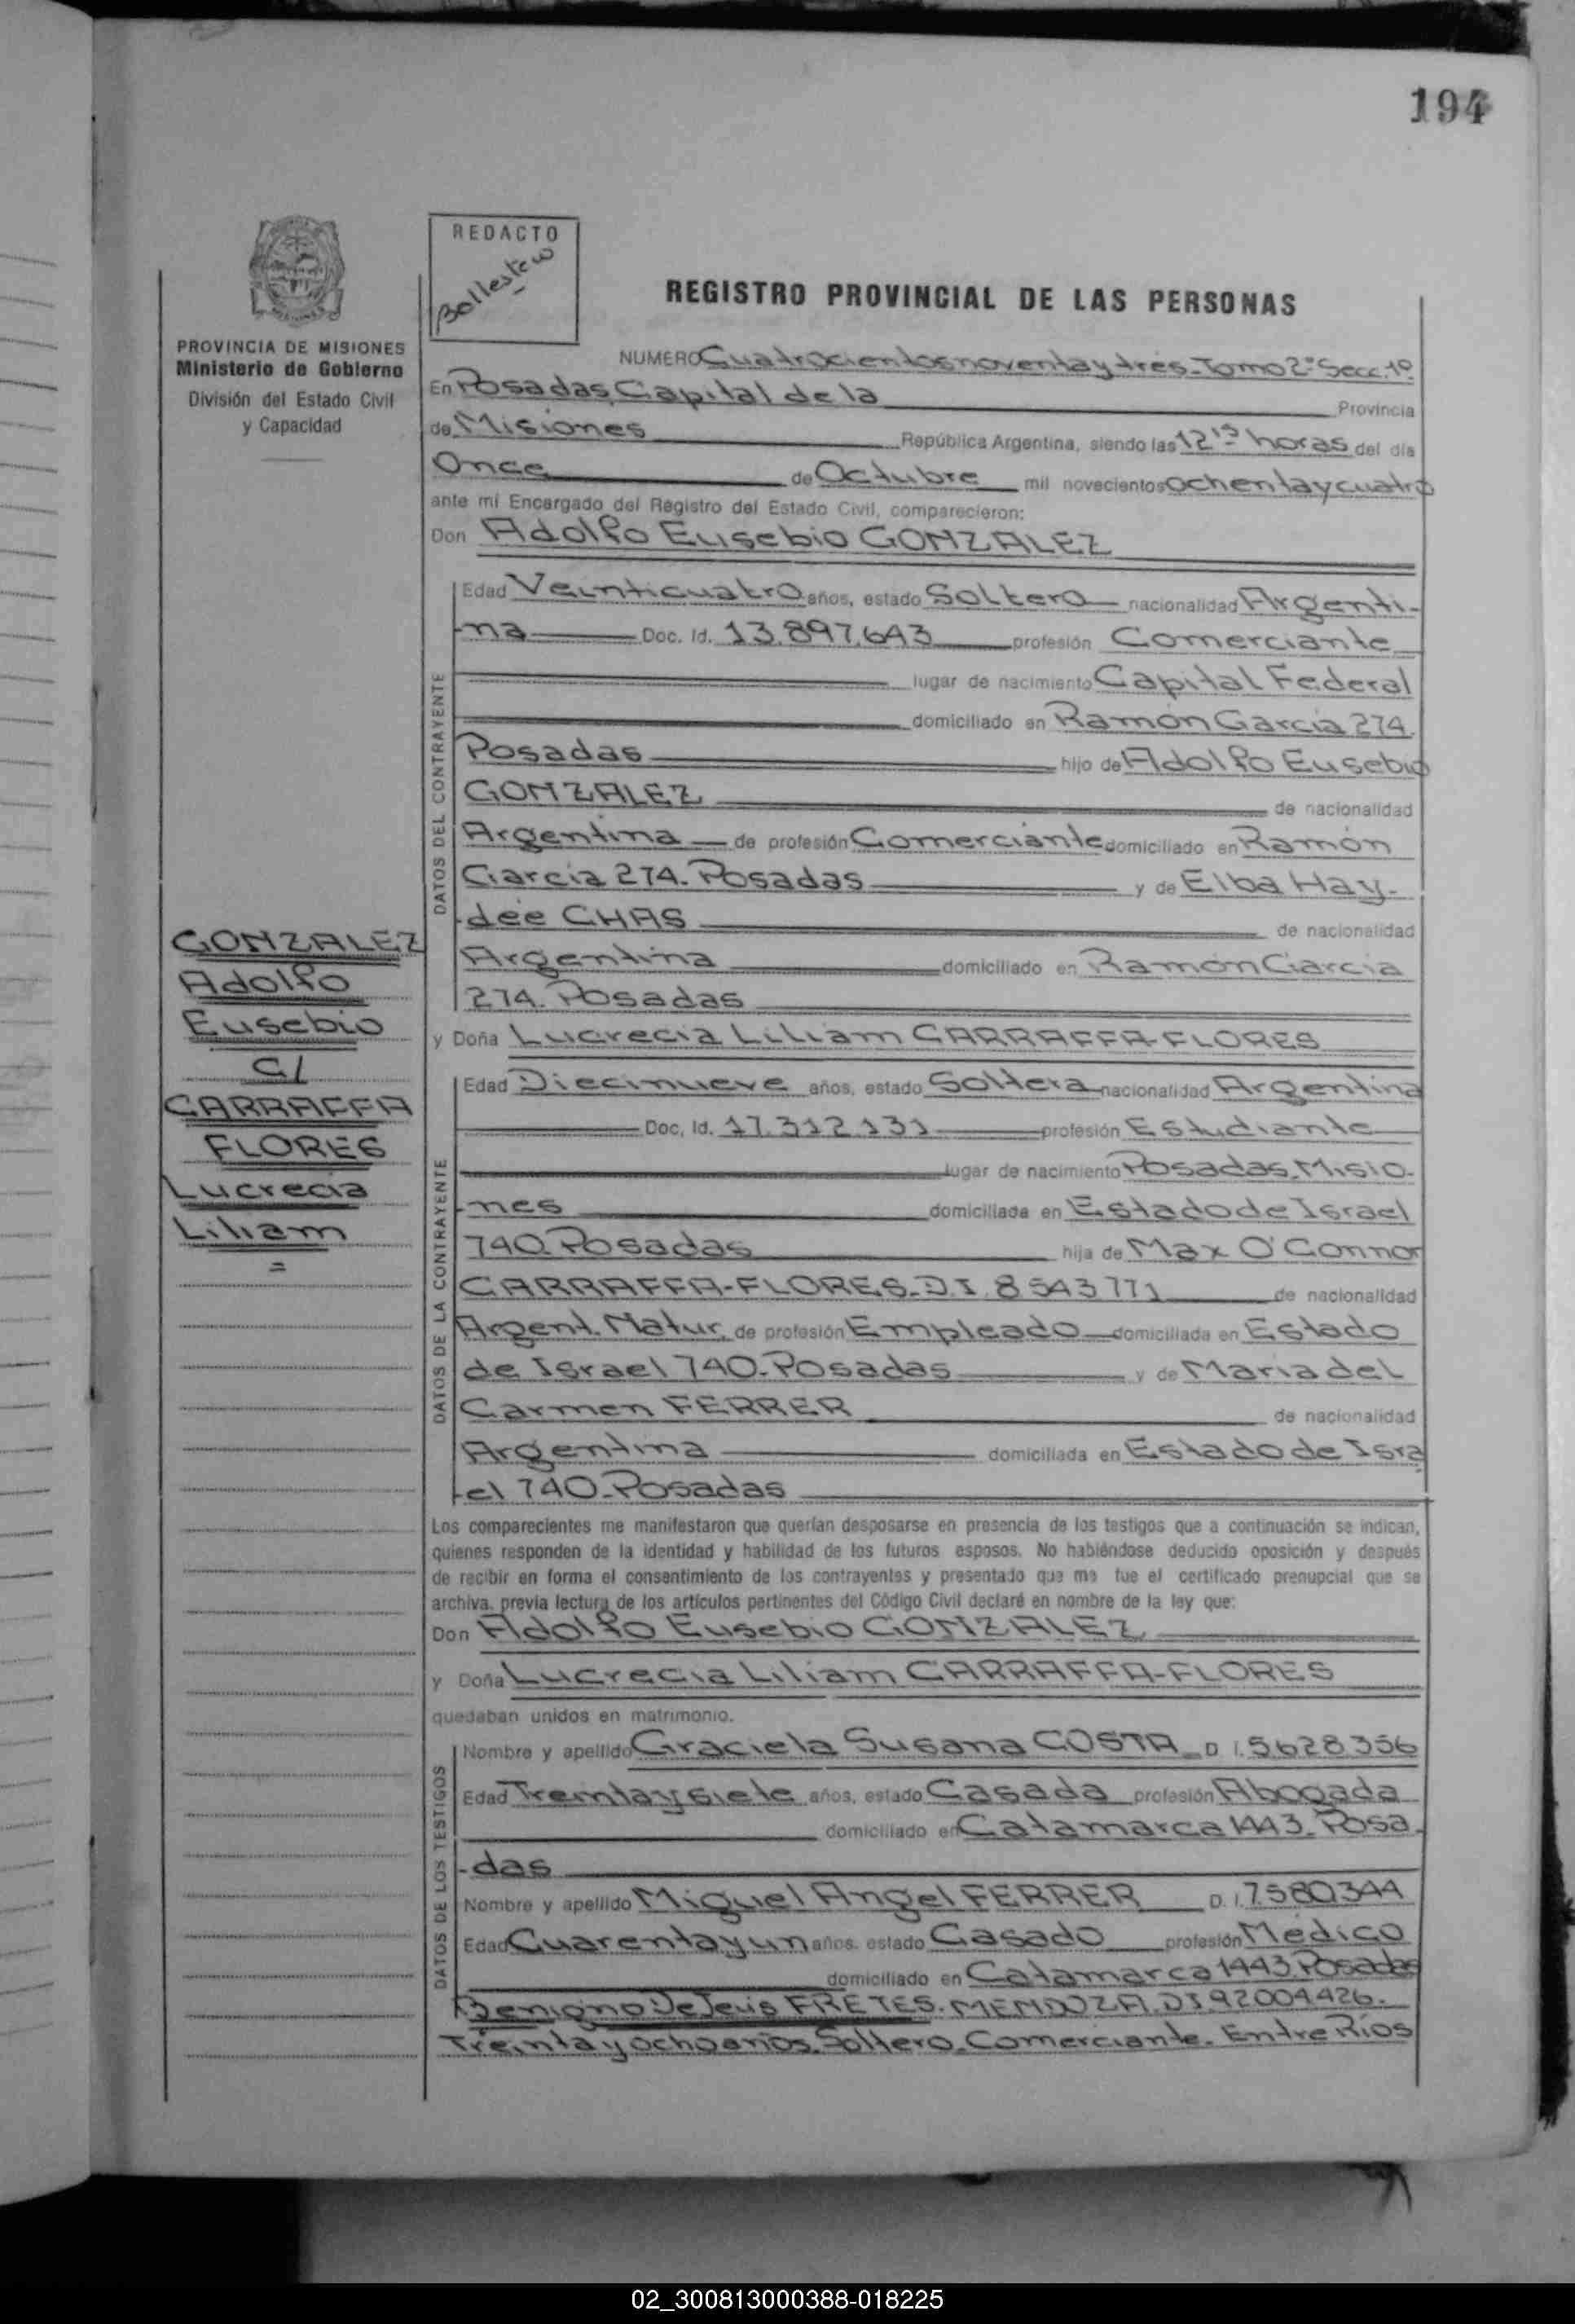 194
REDACTO
Ballestero
REGISTRO PROVINCIAL DE LAS PERSONAS
PROVINCIA DE MISIONES
Ministerio de Gobierno
División del Estado Civil
y Capacidad
NUMERO Cuatrocientos noventa y tres. Tomo 2º Secc. 1º
En Posadas, Capital de la Provincia
de Misiones República Argentina, siendo las 12 horas del día
Once de Octubre mil novecientos ochenta y cuatro
ante mí Encargado del Registro del Estado Civil, comparecieron:
Don Adolfo Eusebio GONZALEZ
DATOS DEL CONTRAYENTE
Edad Veinticuatro años, estado Soltero nacionalidad Argenti-
-na Doc. Id. 13.897.643 profesión Comerciante
lugar de nacimiento Capital Federal
domiciliado en Ramón García 274.
Posadas hijo de Adolfo Eusebio
GONZALEZ de nacionalidad
Argentina de profesión Comerciante domiciliado en Ramón
García 274. Posadas y de Elba Hay-
-deé CHAS de nacionalidad
Argentina domiciliado en Ramón García
274. Posadas
GONZALEZ
Adolfo
Eusebio
C/
CARRAFFA
FLORES
Lucrecia
Liliam
=
y Doña Lucrecia Liliam CARRAFFA-FLORES
DATOS DE LA CONTRAYENTE
Edad Diecinueve años, estado Soltera nacionalidad Argentina
Doc. Id. 17.312.131 profesión Estudiante
lugar de nacimiento Posadas, Misio-
-nes domiciliada en Estado de Israel
740. Posadas hija de Max O'Connor
CARRAFFA-FLORES. D.I. 8543771 de nacionalidad
Argent. Natur. de profesión Empleado domiciliada en Estado
de Israel 740. Posadas y de María del
Carmen FERRER de nacionalidad
Argentina domiciliada en Estado de Isra
-el 740. Posadas
Los comparecientes me manifestaron que querían desposarse en presencia de los testigos que a continuación se indican,
quienes responden de la identidad y habilidad de los futuros esposos. No habiéndose deducido oposición y después
de recibir en forma el consentimiento de los contrayentes y presentado que me fue el certificado prenupcial que se
archiva, previa lectura de los artículos pertinentes del Código Civil declaré en nombre de la ley que:
Don Adolfo Eusebio GONZALEZ
y Doña Lucrecia Liliam CARRAFFA-FLORES
quedaban unidos en matrimonio.
DATOS DE LOS TESTIGOS
Nombre y apellido Graciela Susana COSTA D.I. 5628356
Edad Treinta y siete años, estado Casada profesión Abogada
domiciliado en Catamarca 1443. Posa-
-das
Nombre y apellido Miguel Angel FERRER D.I. 7580344
Edad Cuarenta y un años. estado Casado profesión Médico
domiciliado en Catamarca 1443. Posadas
Benigno De Jesús FRETES. MENDOZA. DI 92004426.
Treinta y ocho años. Soltero. Comerciante. Entre Ríos
02_300813000388-018225